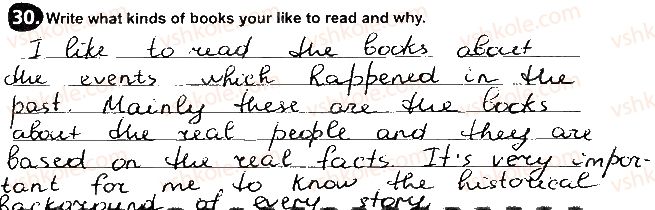 30. Write what kinds of books your like to read and why.
I like to read the books about
the events which happened in the
past. Mainly these are the books
about the real people and they are
based on the real facts. It's very impor-
tant for me to know the historical
background of every story.